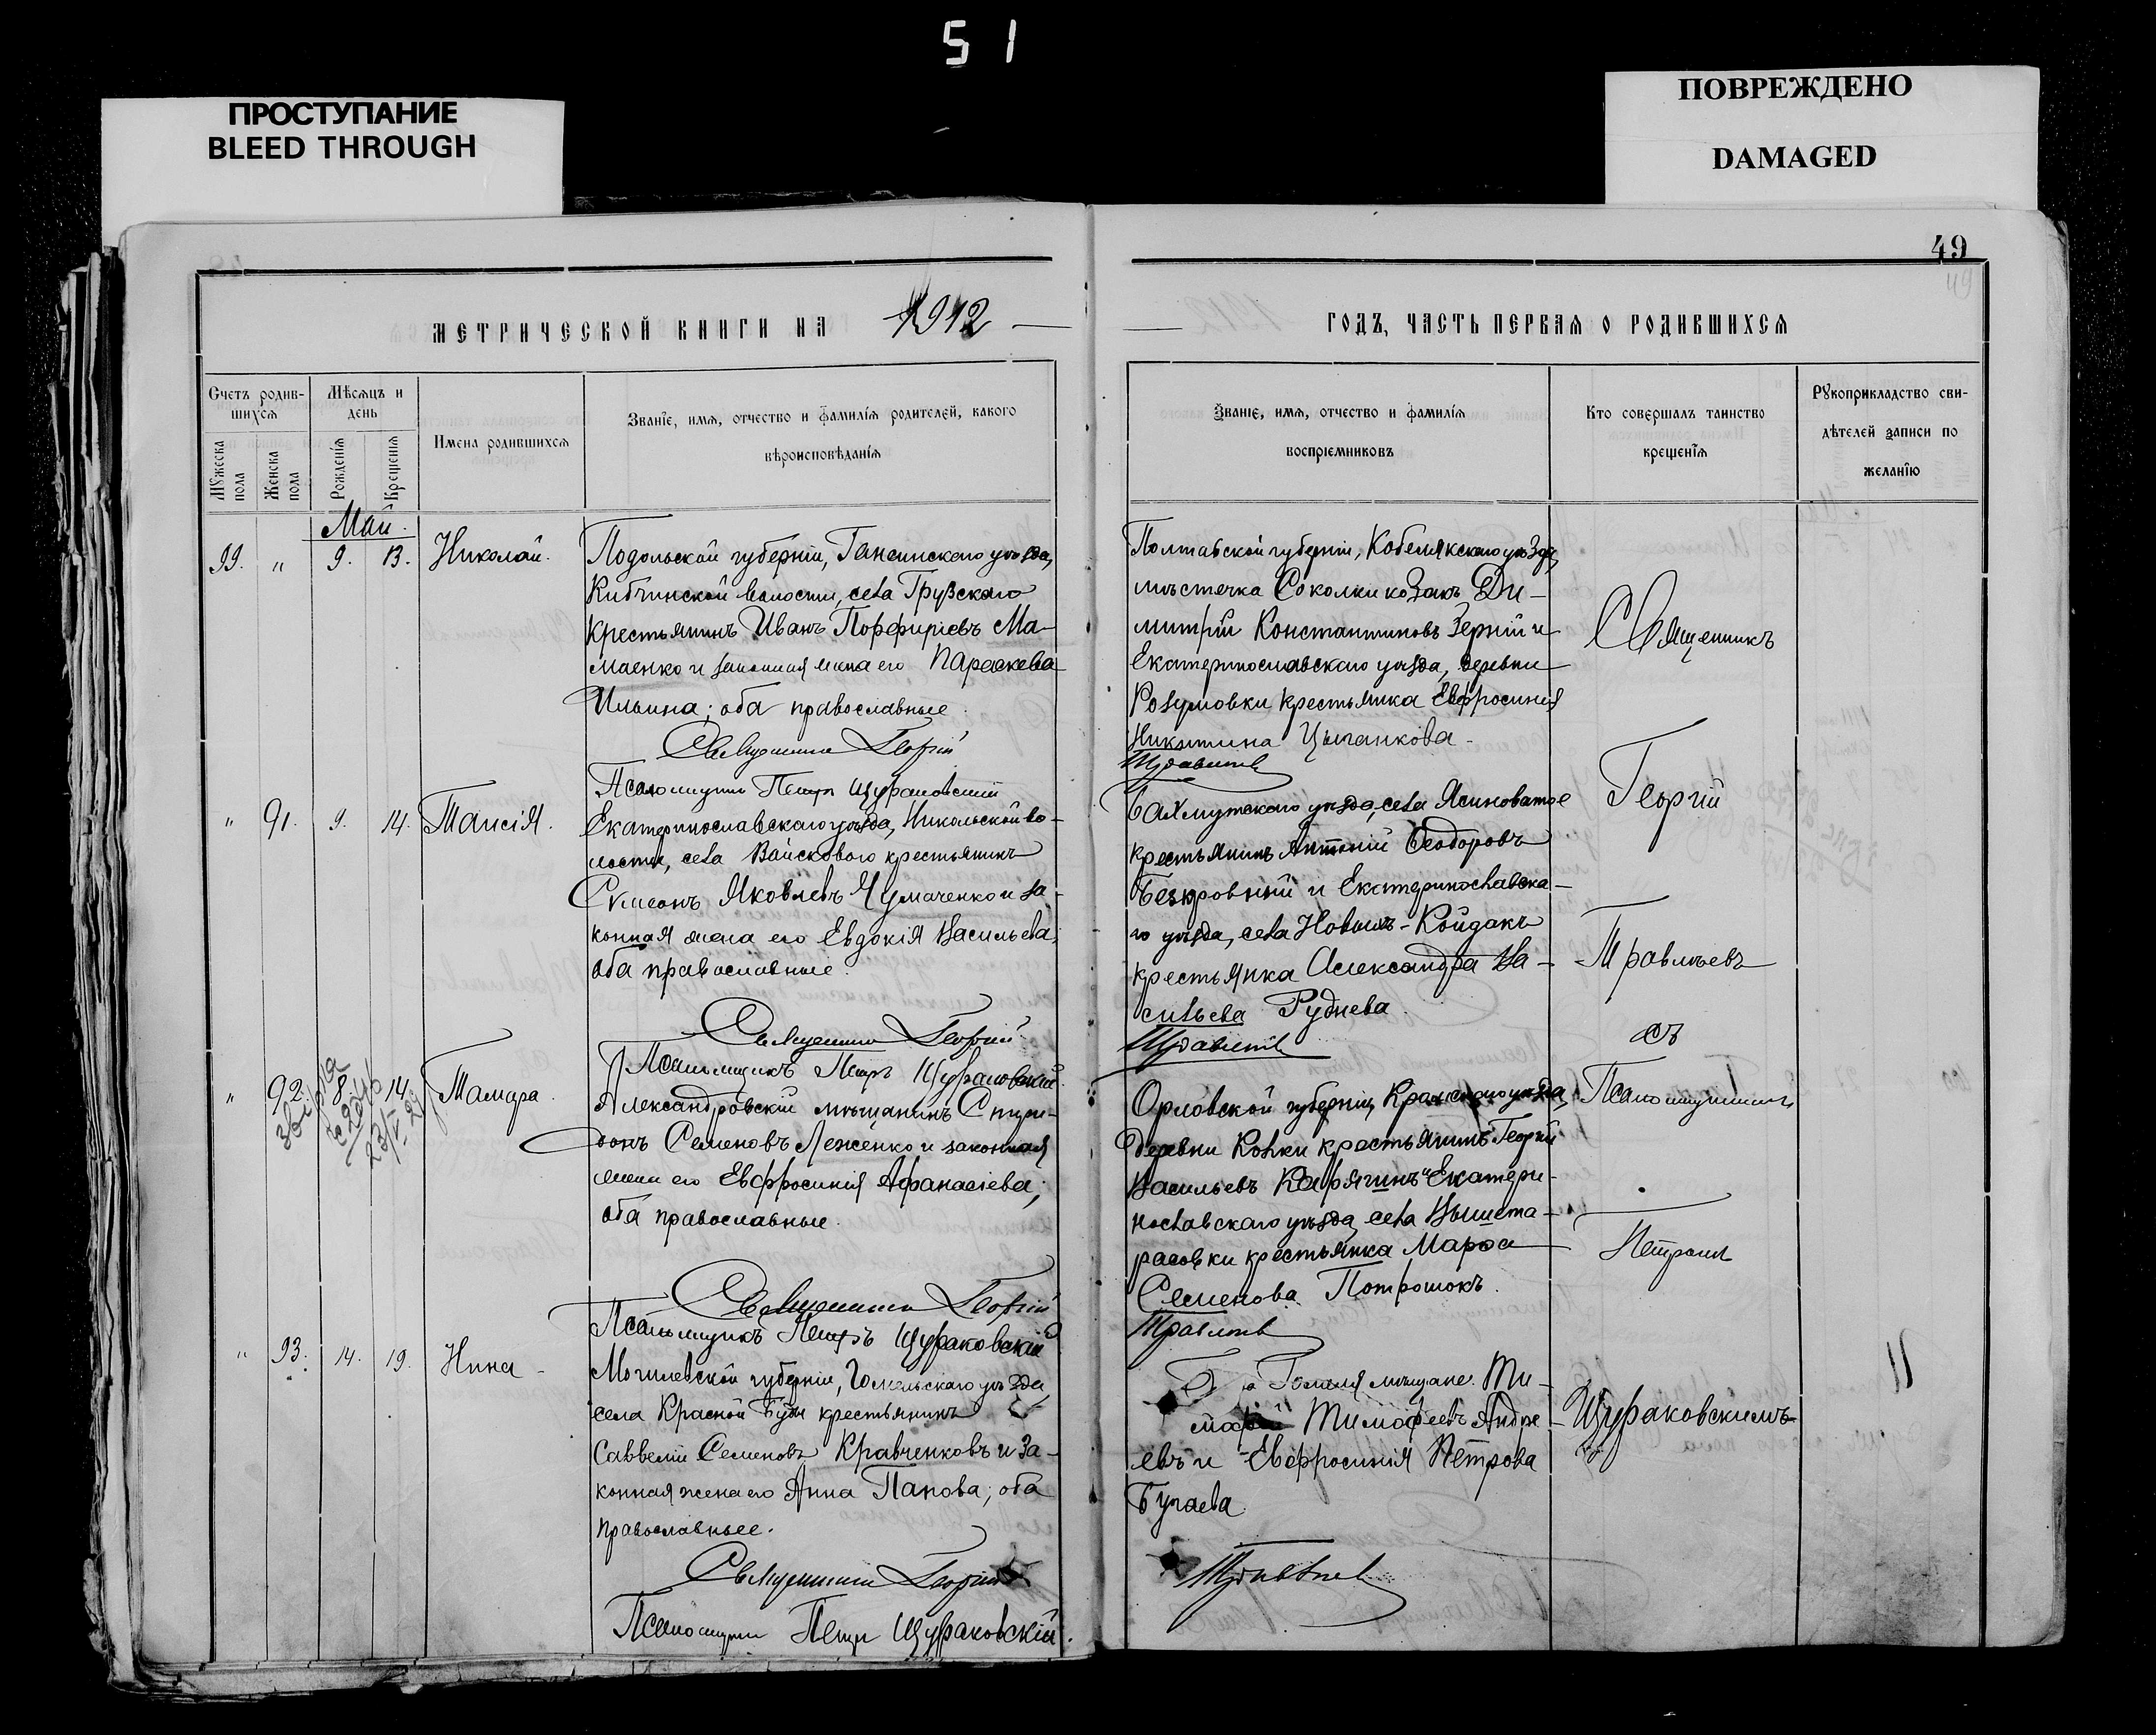 51
ПРОСТУПАНИЕ
BLEED THROUGH
ПОВРЕЖДЕНО
DAMAGED
49
49
МЕТРИЧЕСКОЙ КНИГИ НА 1912
ГОДЪ, ЧАСТЬ ПЕРВАЯ О РОДИВШИХСЯ
Счетъ родив-
шихся
Мужеска пола
Женска пола
Мѣсяцъ и
день
Рожденія
Крещенія
Имена родившихся
Званіе, имя, отчество и фамилія родителей, какого
вѣроисповѣданія
Званіе, имя, отчество и фамилія
воспріемниковъ
Кто совершалъ таинство
крещенія
Рукоприкладство сви-
дѣтелей записи по
желанію
Май.
99. " 9. 13. Николай.
Подольской губерніи, Гайсинскаго уѣзда,
Кибчинской волости, села Грузскаго
крестьянинъ Иванъ Порфиріевъ Ма-
маенко и законная жена его Параскева
Ильина; оба православные.
Священникъ Георгій
Псаломщикъ Петръ Щураковскій
Полтавской губерніи, Кобелякскаго уѣзда,
мѣстечка Соколки козакъ Ди-
митрій Константиновъ Зерній и
Екатеринославскаго уѣзда, деревни
Розумовки крестьянка Евфросинія
Никитина Цыганкова.
Травлѣевъ
" 91. 9. 14. Таисія.
Екатеринославскаго уѣзда, Никольской во-
лости, села Войскового крестьянинъ
Симеонъ Яковлевъ Чумаченко и за-
конная жена его Евдокія Васильева;
оба православные.
Священникъ Георгій
Псаломщикъ Петръ Щураковскій.
Бахмутскаго уѣзда, села Ясиноватое
крестьянинъ Антоній Ѳеодоровъ
и Екатеринославска-
го уѣзда, села Новыхъ-Койдакъ
крестьянка Александра Ва-
сильева Руднева.
Травлѣевъ
" 92. 8. 14. Тамара.
23/V 29
Александровскій мѣщанинъ Спири-
донъ Семеновъ Леженко и законная
жена его Евфросинія Афанасіева;
оба православные.
Священникъ Георгій
Псаломщикъ Петръ Щураковскій
Орловской губерніи, уѣзда,
деревни крестьянинъ Георгій
Васильевъ Карягинъ и Екатери-
нославскаго уѣзда, села Вышета-
расовки крестьянка Марѳа
Семенова Потрошокъ.
Травлѣевъ
" 93. 14. 19. Нина
Могилевской губерніи, Гомельскаго уѣзда,
села Красной Буды крестьянинъ
Саввелій Семеновъ Кравченковъ и за-
конная жена его Анна Панова; оба
православные.
Священникъ Георгій
Псаломщикъ Петръ Щураковскій.
Гомеля мѣщане Ти-
Тимофеевъ Андре-
евъ и Евфросинія Петрова
Бугаева.
Травлѣевъ
Священникъ
Георгій
Травлѣевъ
съ
Псаломщикомъ
Петромъ
Щураковскимъ